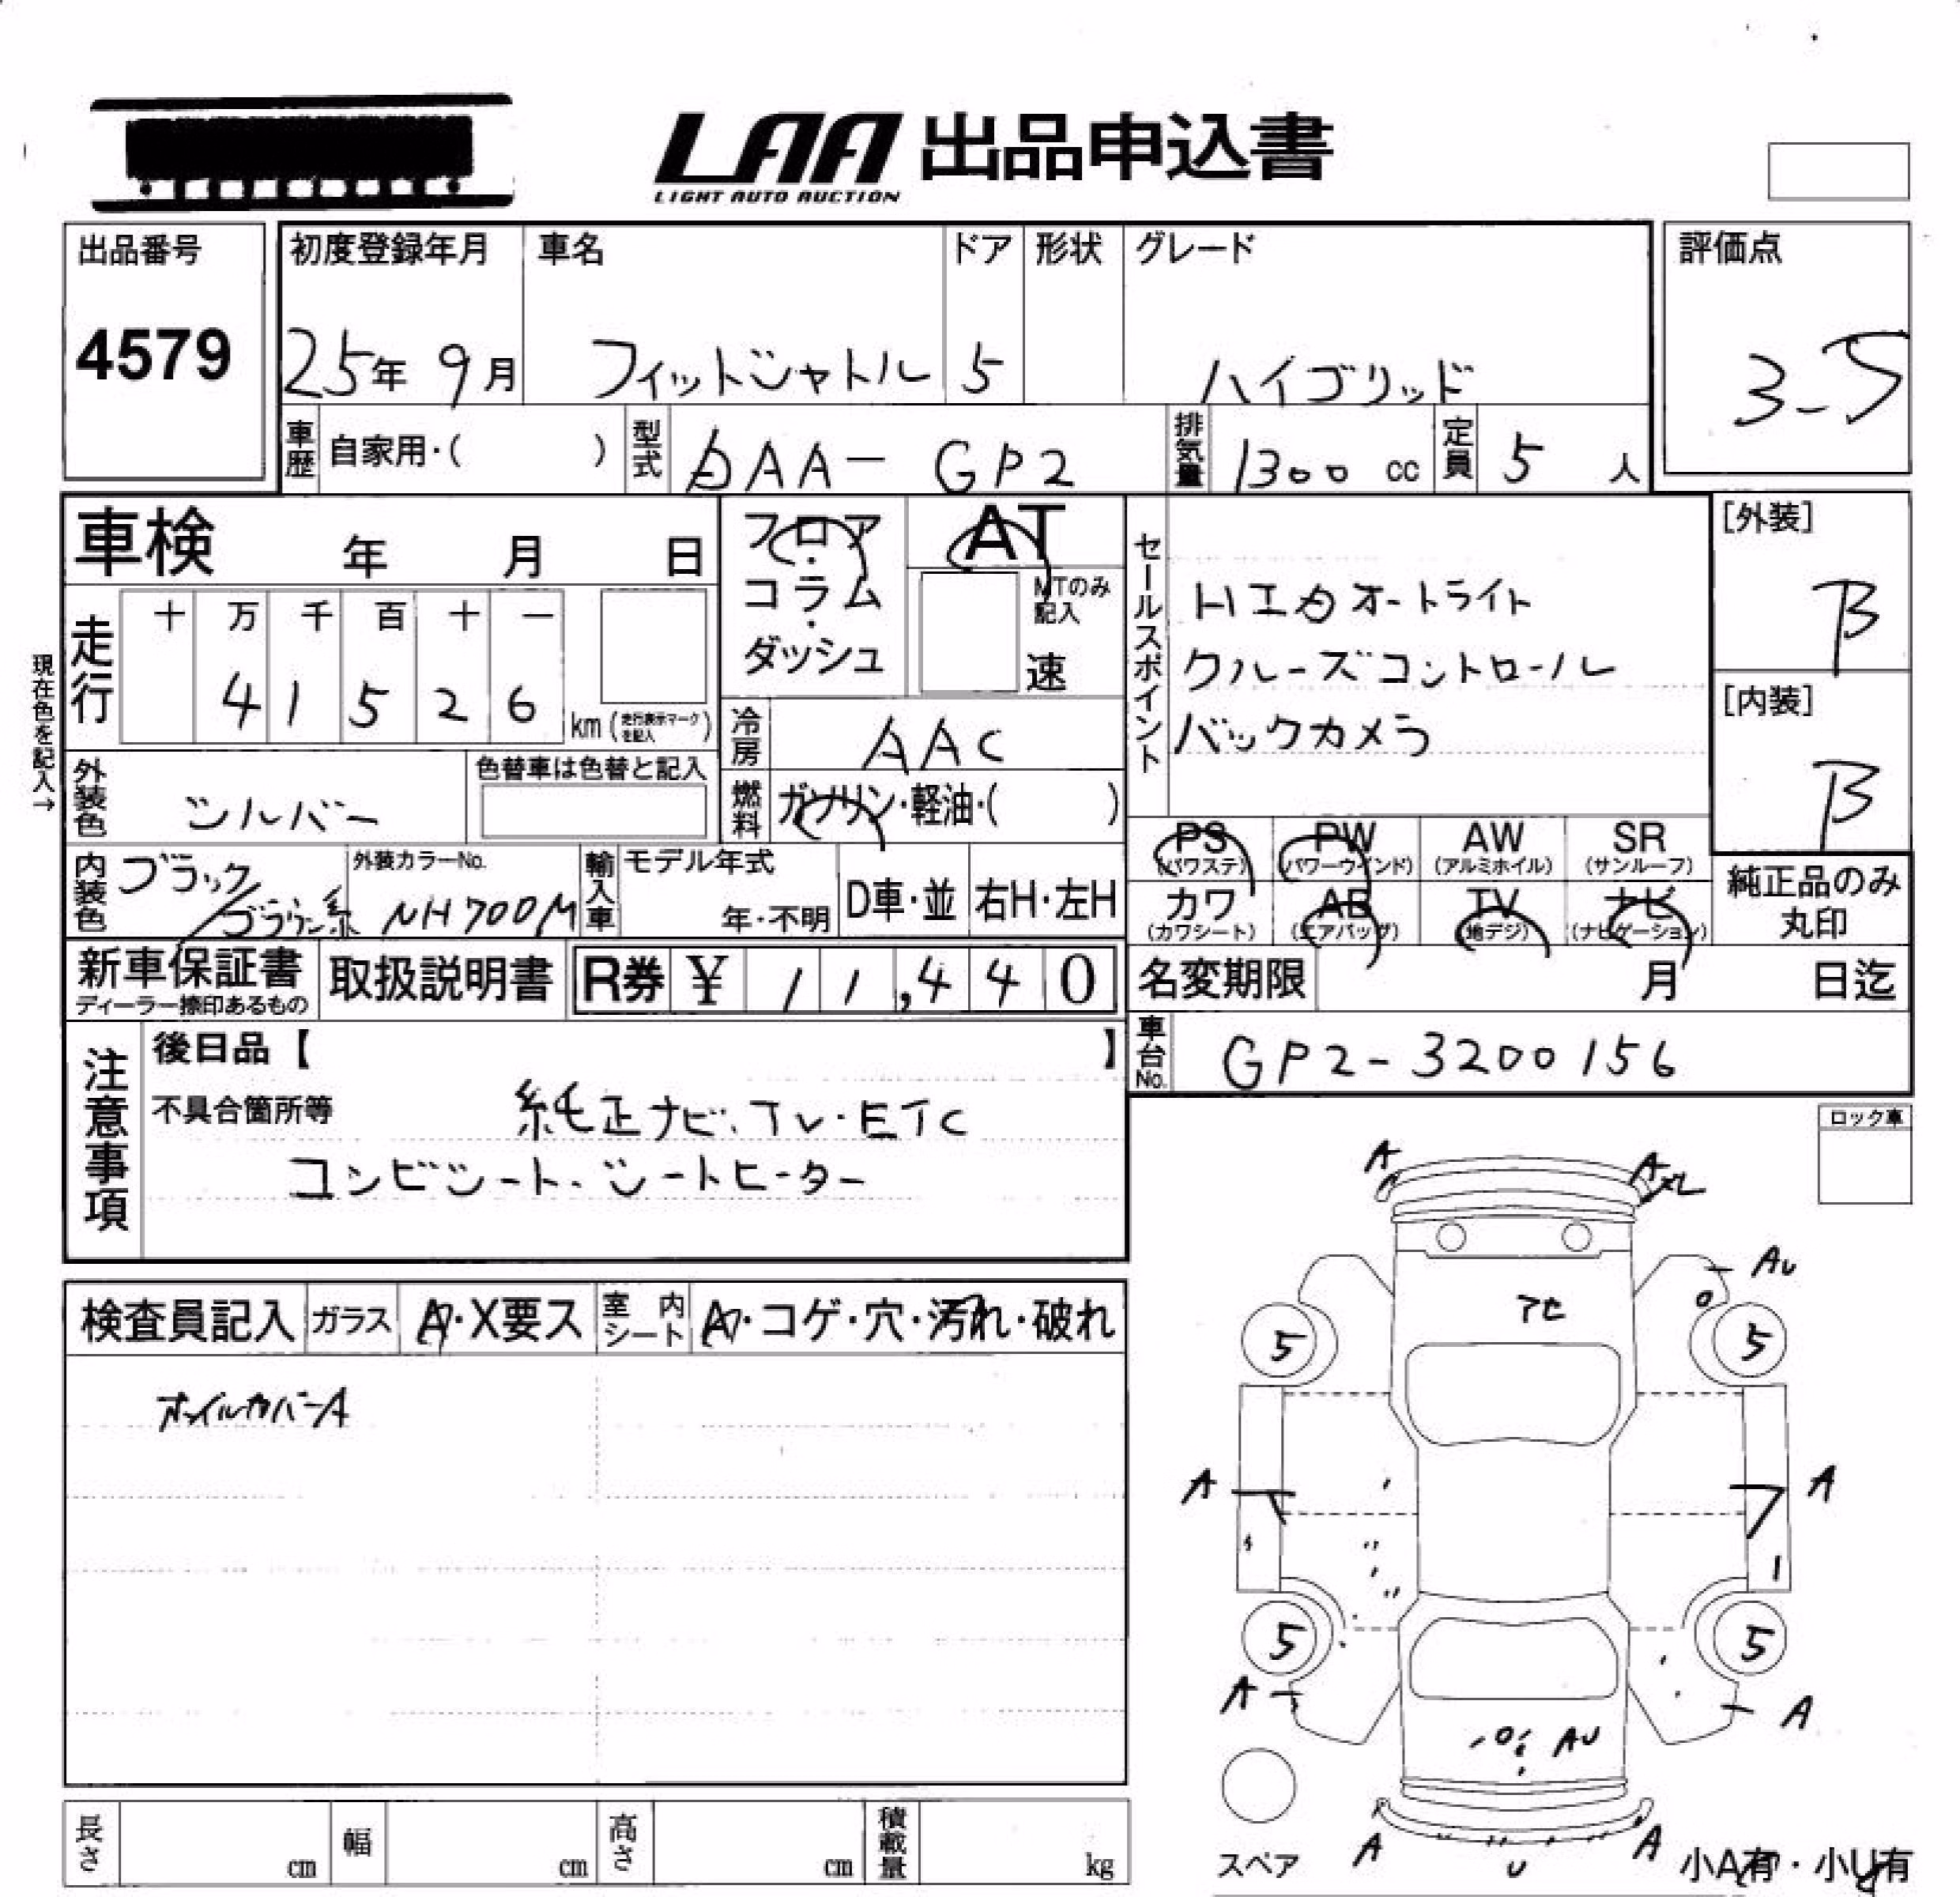 LAA 出品申込書
LIGHT AUTO AUCTION
出品番号
4579
初度登録年月
25年 9月
車名
フィットシャトル
ドア
5
形状
グレード
ハイブリッド
評価点
3-5
車歴 自家用・( )
型式 DAA-GP2
排気量 1300 cc
定員 5 人
車検 年 月 日
フロア・コラム・ダッシュ
AT
MTのみ記入
速
現在色を記入→
走行
十 万 千 百 十 一
4 1 5 2 6
km (走行表示マークを記入)
冷房 AAC
燃料 ガソリン・軽油・( )
外装色 シルバー
色替車は色替と記入
内装色 ブラック/ブラウン系
外装カラーNo. NH700M
輸入車 モデル年式 年・不明
D車・並
右H・左H
セールスポイント
HID オートライト
クルーズコントロール
バックカメラ
[外装]
B
[内装]
B
PS (パワステ)
PW (パワーウインド)
AW (アルミホイル)
SR (サンルーフ)
カワ (カワシート)
AB (エアバッグ)
TV (地デジ)
ナビ (ナビゲーション)
純正品のみ丸印
新車保証書
ディーラー捺印あるもの
取扱説明書
R券 ¥ 11,440
名変期限 月 日迄
車台No. GP2-3200156
注意事項
後日品【 】
不具合箇所等
純正ナビ・TV・ETC
コンビシート・シートヒーター
ロック車
検査員記入
ガラス A・X要ス
室内シート A・コゲ・穴・汚れ・破れ
ホイルカバーA
A
A
AU
アヒ
5
5
A
A
5
5
A
A
AU
A
U
A
スペア
小A有・小U有
長さ cm
幅 cm
高さ cm
積載量 kg